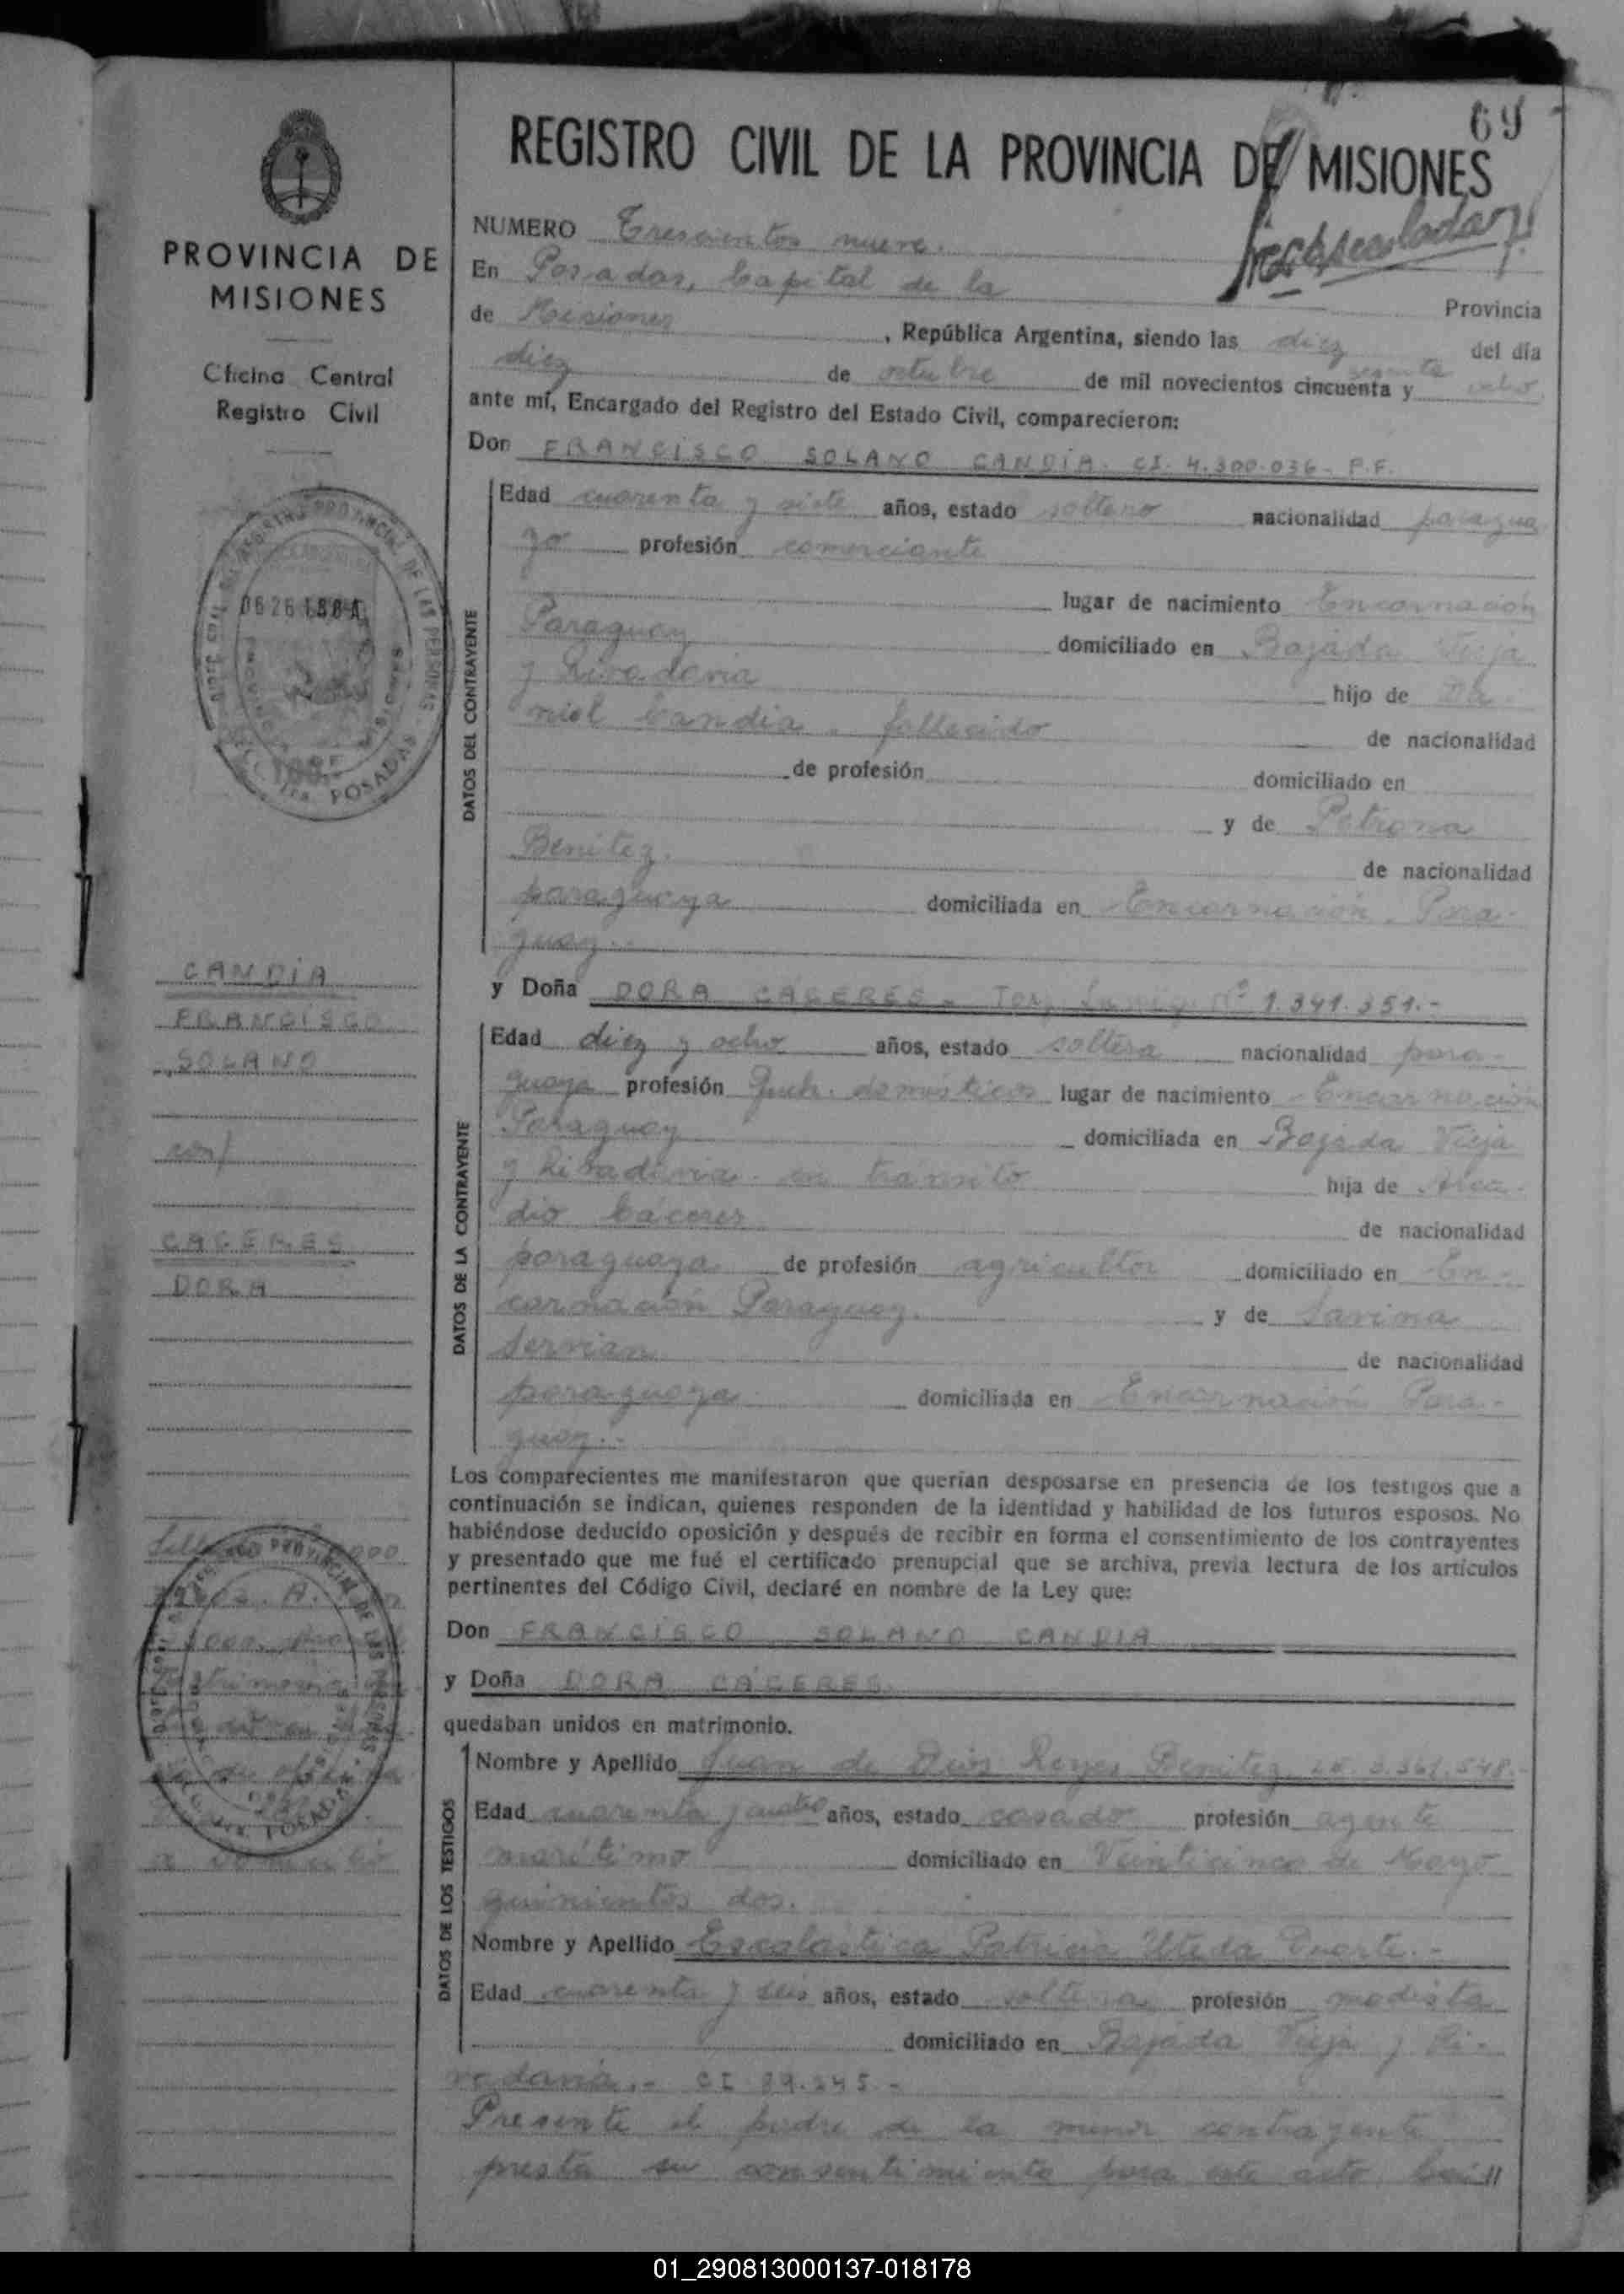 69
REGISTRO CIVIL DE LA PROVINCIA DE MISIONES
PROVINCIA DE
MISIONES
Oficina Central
Registro Civil
0626180A
POSADAS
CANDIA
FRANCISCO
SOLANO
con/
CACERES
DORA
NUMERO Trescientos nueve.
En Posadas, Capital de la
Provincia
de Misiones, República Argentina, siendo las diez del día
diez de octubre de mil novecientos cincuenta y ocho
sesenta
ante mí, Encargado del Registro del Estado Civil, comparecieron:
Don FRANCISCO SOLANO CANDIA. CI. 4.300.036. P.F.
DATOS DEL CONTRAYENTE
Edad cuarenta y siete años, estado soltero nacionalidad paragua
yo profesión comerciante
lugar de nacimiento Encarnación
Paraguay domiciliado en Bajada Vieja
y Rivadavia hijo de Da
niel Candia. fallecido de nacionalidad
de profesión domiciliado en
y de Petrona
Benitez. de nacionalidad
paraguaya domiciliada en Encarnación. Para-
guay.-
y Doña DORA CACERES. Nº 1.391.351.-
DATOS DE LA CONTRAYENTE
Edad diez y ocho años, estado soltera nacionalidad para-
guaya profesión Queh. domésticos lugar de nacimiento Encarnación
Paraguay domiciliada en Bajada Vieja
y Rivadavia. en tránsito hija de Arca-
dio Cáceres de nacionalidad
paraguaya de profesión agricultor domiciliado en En-
carnación Paraguay. y de Savina
Servian de nacionalidad
paraguaya domiciliada en Encarnación Para-
guay.-
Los comparecientes me manifestaron que querían desposarse en presencia de los testigos que a
continuación se indican, quienes responden de la identidad y habilidad de los futuros esposos. No
habiéndose deducido oposición y después de recibir en forma el consentimiento de los contrayentes
y presentado que me fué el certificado prenupcial que se archiva, previa lectura de los artículos
pertinentes del Código Civil, declaré en nombre de la Ley que:
Don FRANCISCO SOLANO CANDIA
y Doña DORA CÁCERES.
quedaban unidos en matrimonio.
DATOS DE LOS TESTIGOS
Nombre y Apellido Juan de Dios Reyes Benitez
Edad cuarenta y cuatro años, estado casado profesión agente
marítimo domiciliado en Veinticinco de Mayo
quinientos dos.
Nombre y Apellido Escolástica Patricia Uteda Duarte.-
Edad cuarenta y seis años, estado soltera profesión modista
domiciliado en Bajada Vieja y Ri-
vadavia.- CI 89.245.-
Presente el padre de la menor contrayente
presta su consentimiento para este acto
01_290813000137-018178